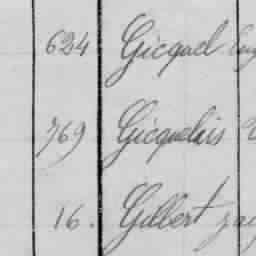 624 Gicquel
769 Gicquelais
16. Gilbert